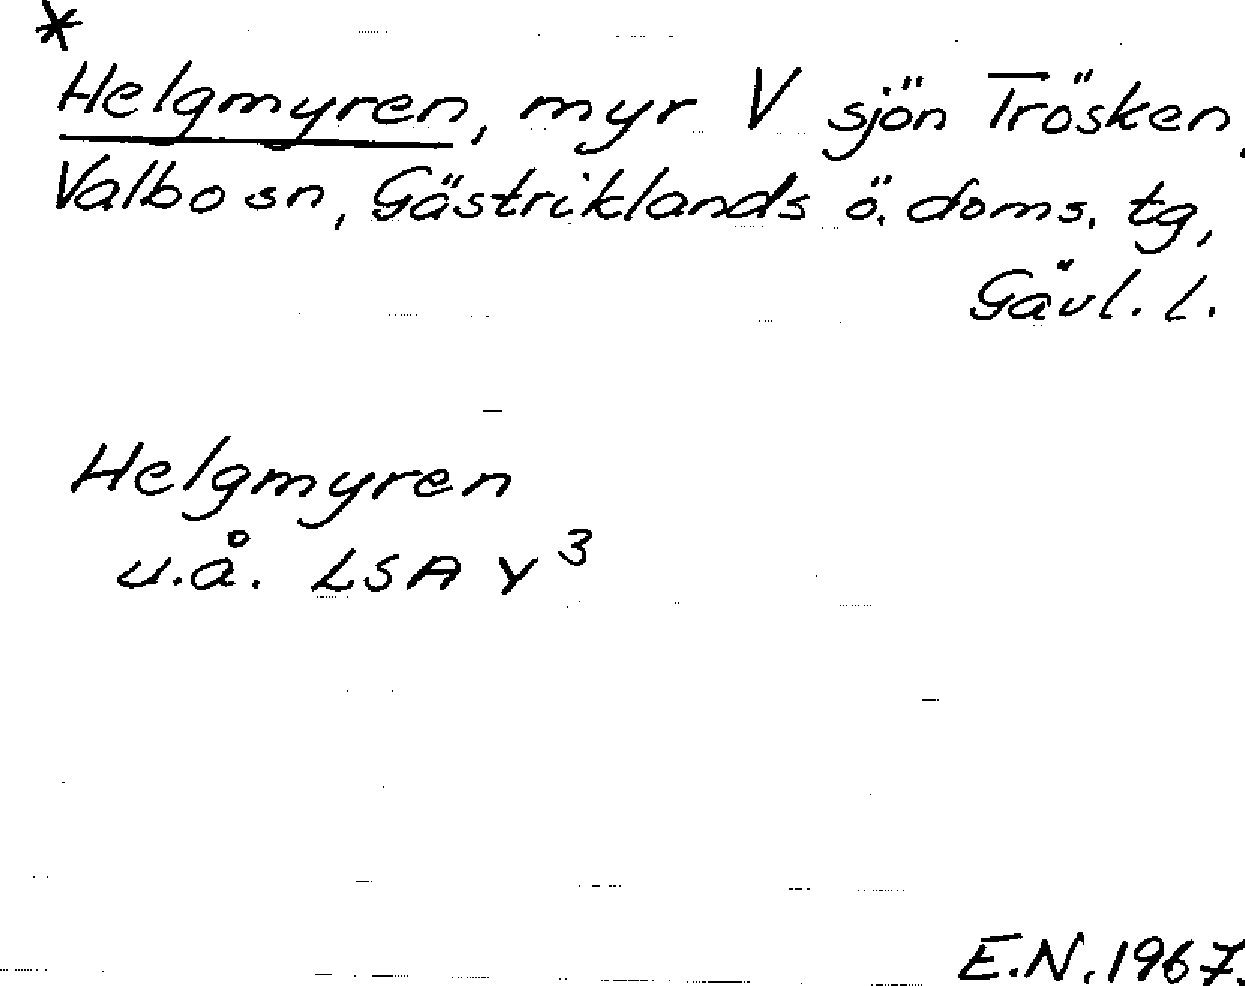 *
Helgmyren, myr V sjön Trösken,
Valbo sn, Gästriklands ö. doms. tg,
Gävl. l.
Helgmyren
u.å. LSA Y³
E.N. 1967.